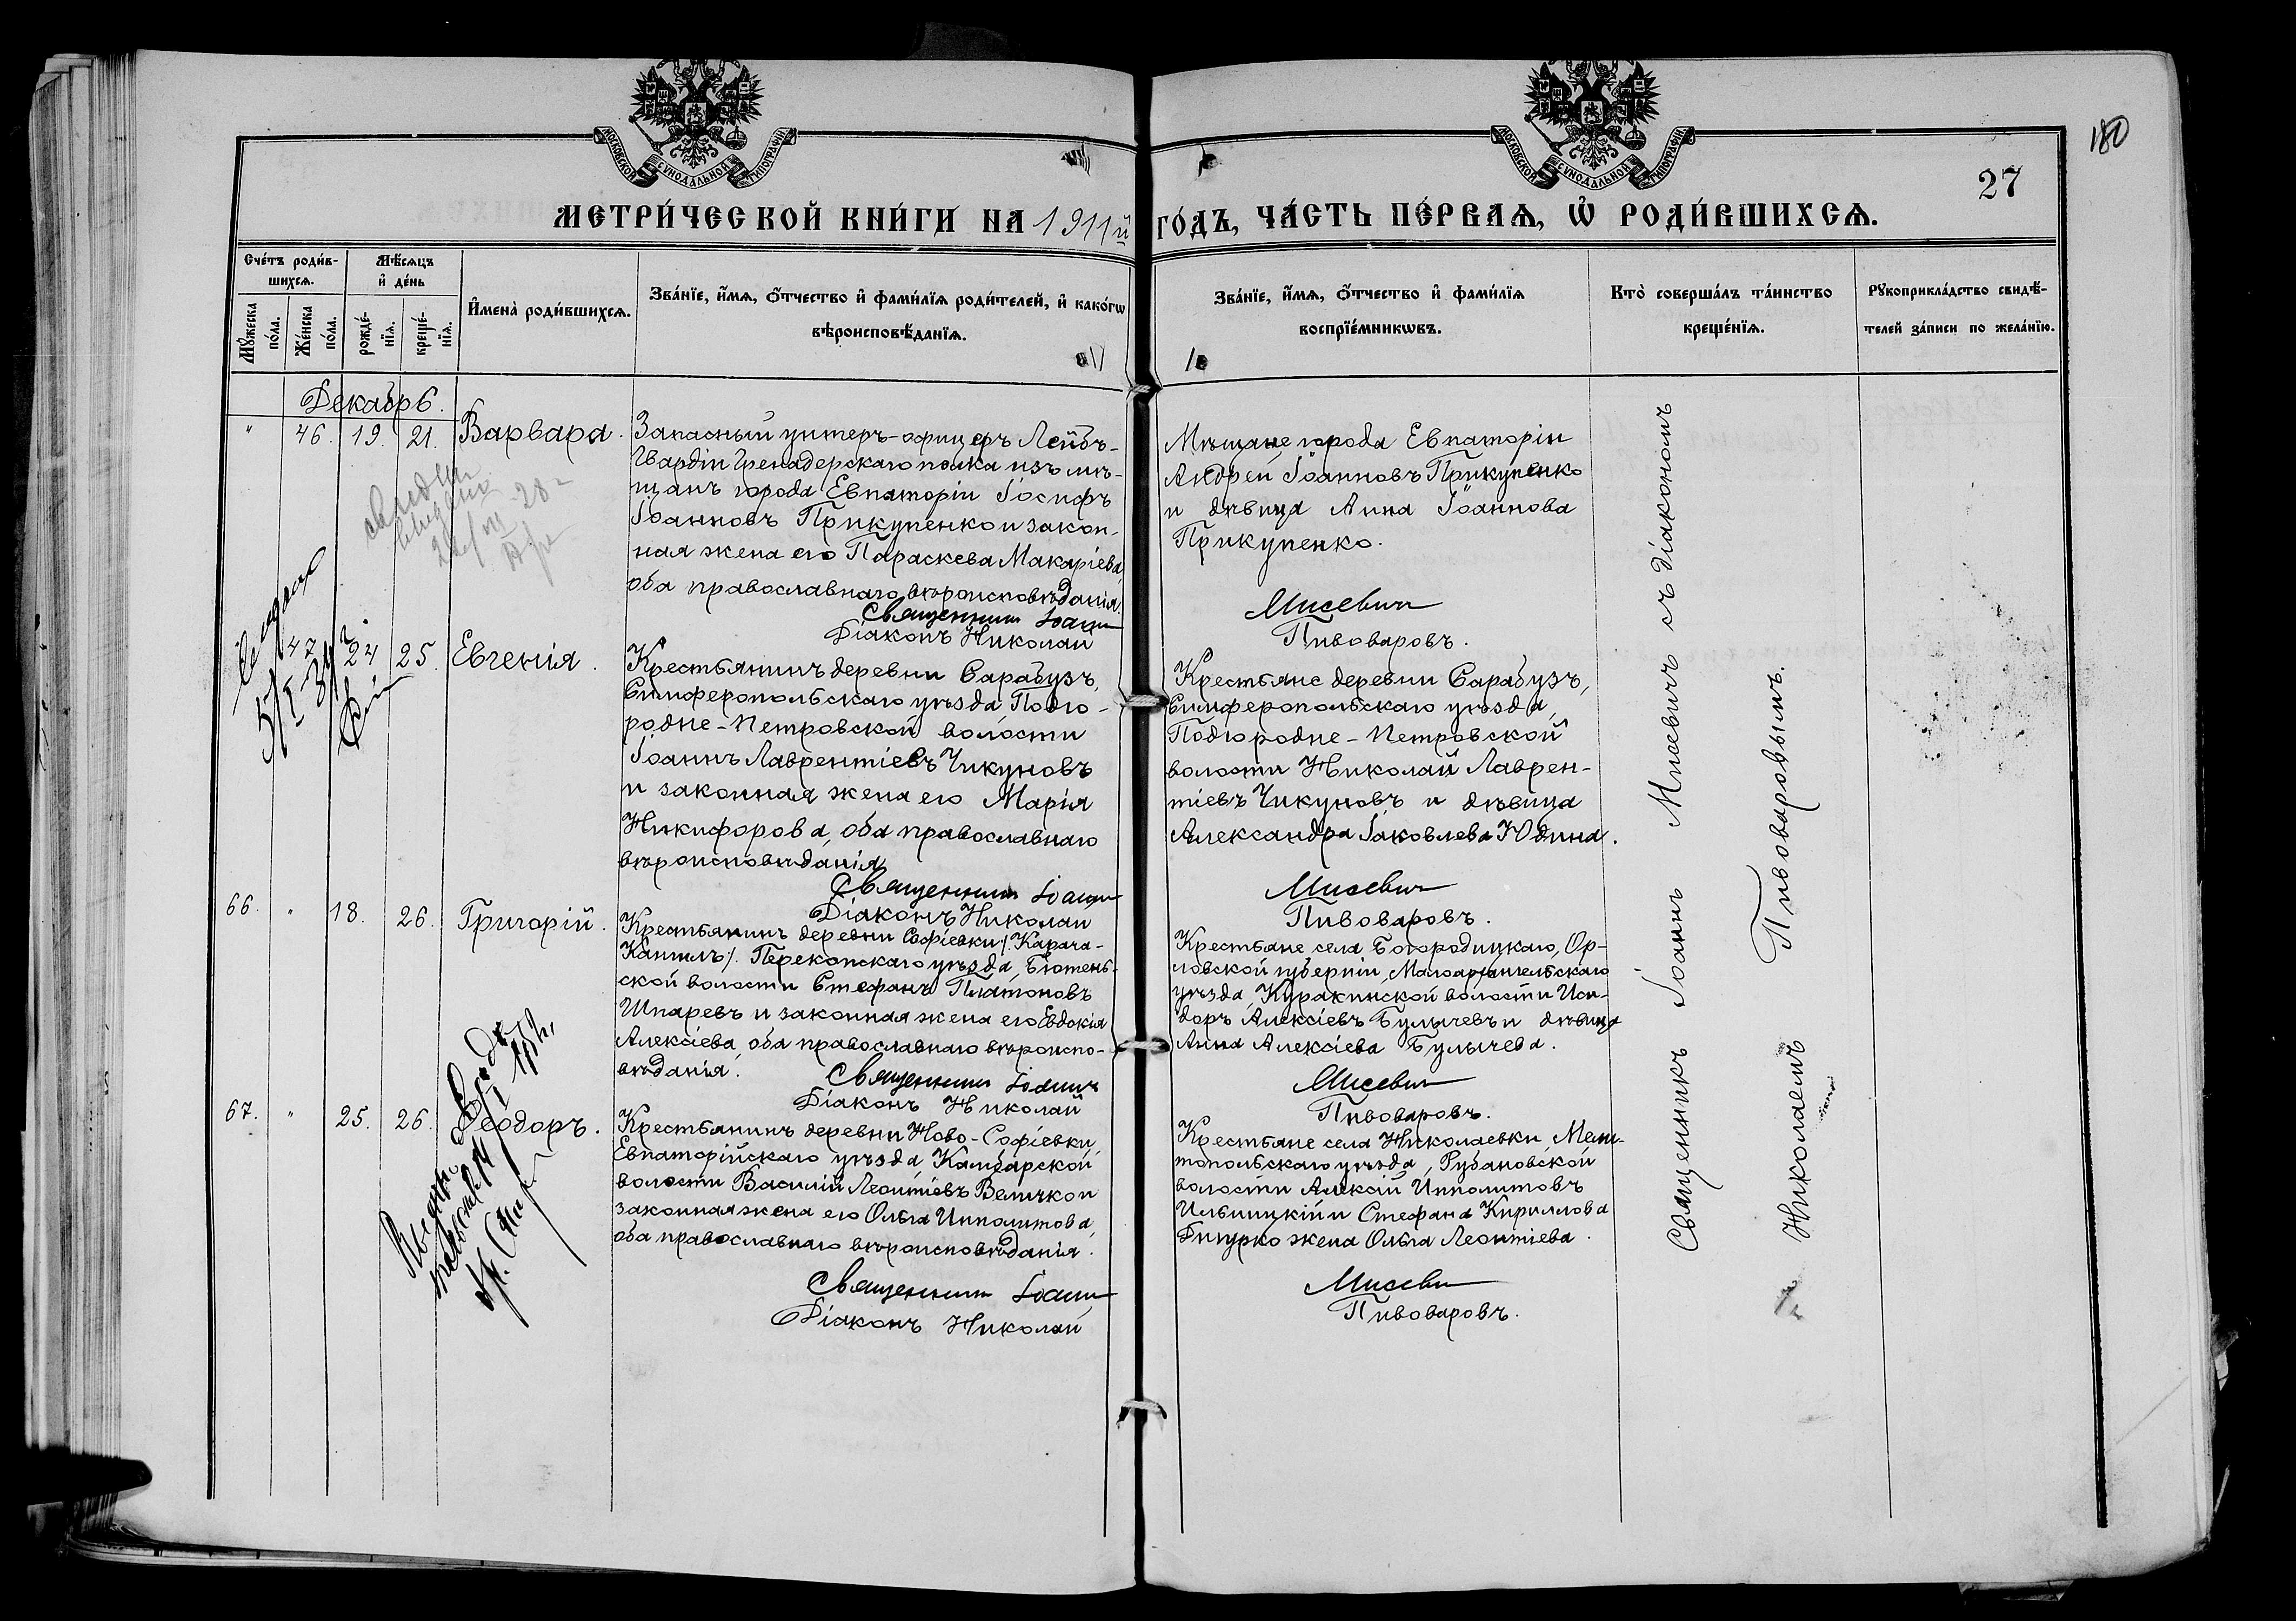 МОСКОВСКОЙ СѴНОДАЛЬНОЙ ТИПОГРАФІИ
МОСКОВСКОЙ СѴНОДАЛЬНОЙ ТИПОГРАФІИ
180
27
МЕТРИ́ЧЕСКОЙ КНИ́ГИ НА 1911й ГО́ДЪ, ЧА́СТЬ ПЕ́РВАѦ, Ѡ҆ РОДИ́ВШИХСѦ.
Сче́тъ роди́в-
шихсѧ.
Мѣ́сѧцъ
и҆ де́нь
Мꙋ́жеска
по́ла.
Же́нска
по́ла.
рожде́-
нїѧ.
креще́-
нїѧ.
И҆мена̀ роди́вшихсѧ.
Зва́нїе, и҆́мѧ, ѻ҆́тчество и҆ фами́лїѧ роди́телей, и҆ како́гѡ
вѣроисповѣ́данїѧ.
Зва́нїе, и҆́мѧ, ѻ҆́тчество и҆ фами́лїѧ
воспрїе́мникѡвъ.
Кто̀ соверша́лъ та́инство
креще́нїѧ.
Рꙋкоприкла́дство свидѣ́-
телей за́писи по жела́нїю.
Декабрь.
" 46. 19. 21. Варвара.
Запасный унтеръ-офицеръ Лейбъ-
Гвардіи Гренадерскаго полка изъ мѣ-
щанъ города Евпаторіи Іосифъ
Іоанновъ Прикупенко и закон-
ная жена его Параскева Макаріева,
оба православнаго вѣроисповѣданія.
Священникъ Іоаннъ
Діаконъ Николай
Мѣщане города Евпаторіи
Андрей Іоанновъ Прикупенко
и дѣвица Анна Іоаннова
Прикупенко.
Мисевичъ
Пивоваровъ.
47. 24 25. Евгенія.
Крестьянинъ деревни Сарабузъ,
Симферопольскаго уѣзда, Подго-
родне-Петровской волости
Іоаннъ Лаврентіевъ Чикуновъ
и законная жена его Марія
Никифорова, оба православнаго
вѣроисповѣданія
Священникъ Іоаннъ
Діаконъ Николай
Крестьяне деревни Сарабузъ,
Симферопольскаго уѣзда,
Подгородне-Петровской
волости Николай Лаврен-
тіевъ Чикуновъ и дѣвица
Александра Іаковлева Юдина.
Мисевичъ
Пивоваровъ.
66. " 18. 26. Григорій.
Крестьянинъ деревни Софіевки /. Карача-
Кангилъ /. Перекопскаго уѣзда, Бютень-
ской волости Стефанъ Платоновъ
Шпаревъ и законная жена его Евдокія
Алексіева, оба православнаго вѣроиспо-
вѣданія.
Священникъ Іоаннъ
Діаконъ Николай
Крестьяне села Богородицкаго, Ор-
ловской губерніи, Малоархангельскаго
уѣзда, Куракинской волости Иси-
доръ Алексіевъ Булычевъ и дѣвица
Анна Алексіева Булычева.
Мисевичъ
Пивоваровъ.
67. " 25. 26. Ѳеодоръ.
Крестьянинъ деревни Ново-Софіевки,
Евпаторійскаго уѣзда, Камбарской
волости Василій Леонтіевъ Величко и
законная жена его Ольга Ипполитова,
оба православнаго вѣроисповѣданія.
Священникъ Іоаннъ
Діаконъ Николай
Крестьяне села Николаевки, Мели-
топольскаго уѣзда, Рубановской
волости Алексій Ипполитовъ
Ильницкій и Стефана Кириллова
Гнурко жена Ольга Леонтіева.
Мисевичъ
Пивоваровъ.
Священникъ Іоаннъ Мисевичъ съ діакономъ
Николаемъ Пивоваровымъ.